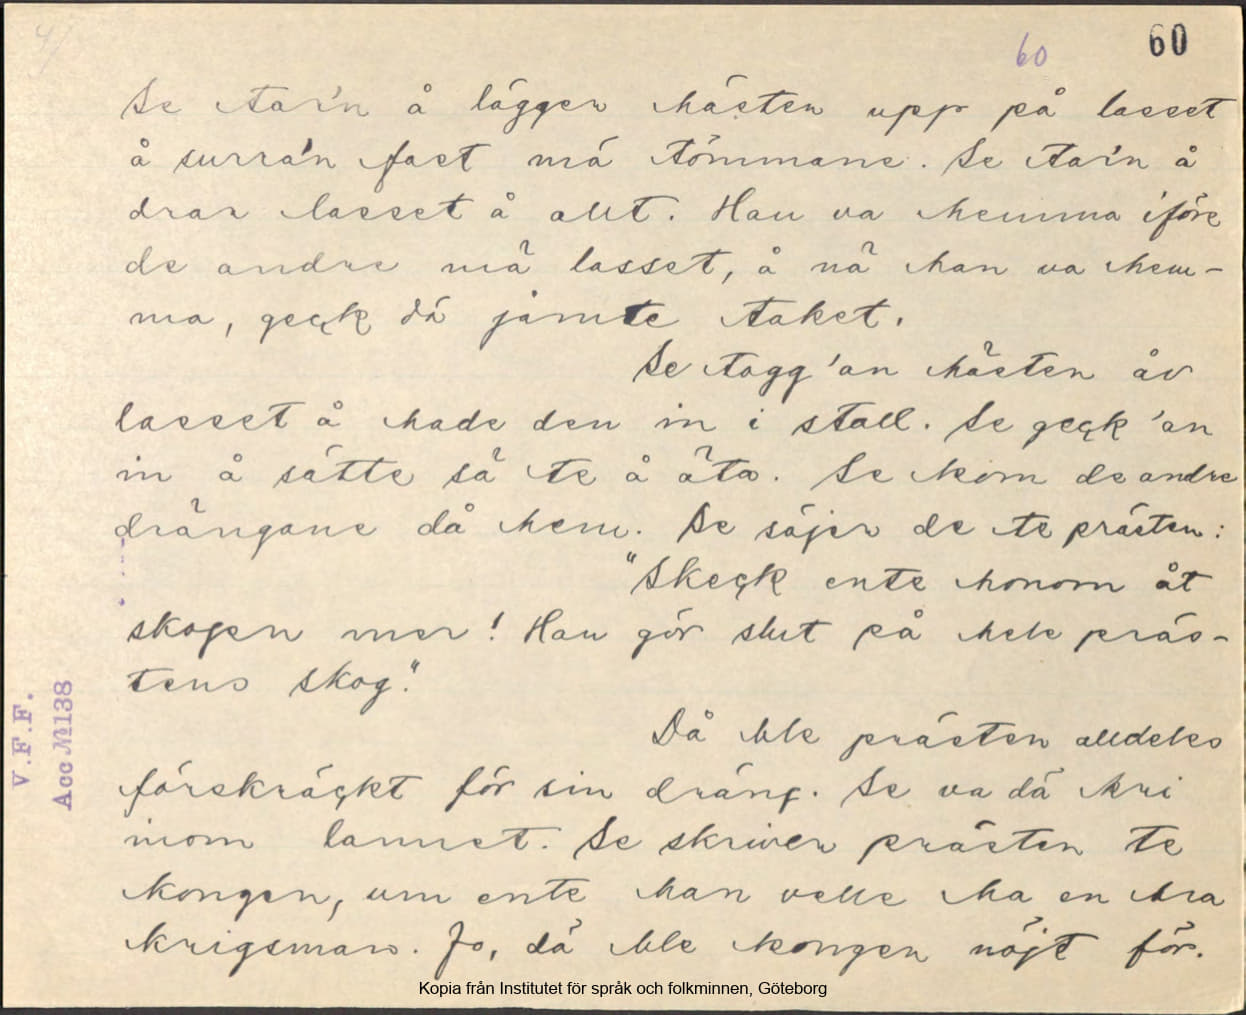 4/
60
60
Se tar'n å lägger hästen upp på lasset
å surra'n fast mä tömmane. Se tar'n å
drar lasset å allt. Han va hemma iföre
de andre mä lasset, å nä han va hem-
ma, geck dä jämte taket.
Se togg'an hästen åv
lasset å hade den in i stall. Se geck'an
in å sätte sä te å äta. Se kom de andre
drängane då hem. Se säjer de te prästen:
"Skeck ente honom åt
skogen mer! Han gör slut på hele präs-
tens skog."
Då ble prästen alldeles
förskräckt för sin dräng. Se va dä kri
inom lannet. Se skriver prästen te
kongen, um ente han velle ha en bra
krigsman. Jo, dä ble kongen nöjt för.
V.F.F.
Acc № 138
Kopia från Institutet för språk och folkminnen, Göteborg